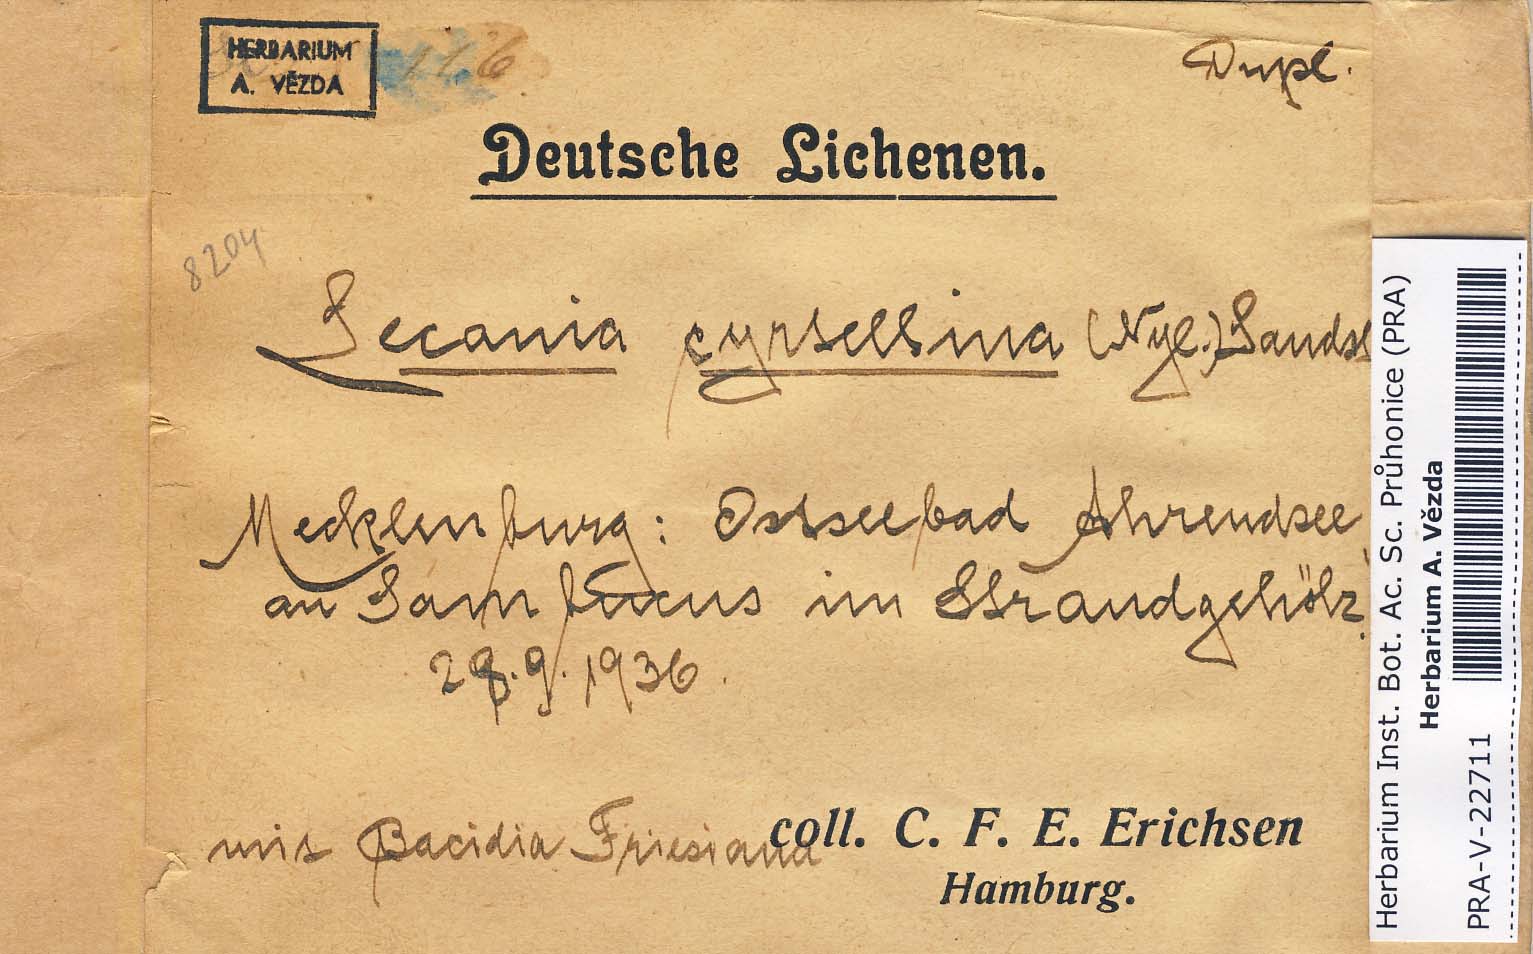 HERBARIUM
A. VĚZDA
Dupl.
Deutsche Lichenen.
8204
Lecania cyrtellina (Nyl.) Sandst
Mecklenburg: Ostseebad Ahrendsee,
an Sambucus im Strandgehölz.
28.9.1936.
mit Bacidia Friesiana
coll. C. F. E. Erichsen
Hamburg.
Herbarium Inst. Bot. Ac. Sc. Průhonice (PRA)
Herbarium A. Vězda
PRA-V-22711